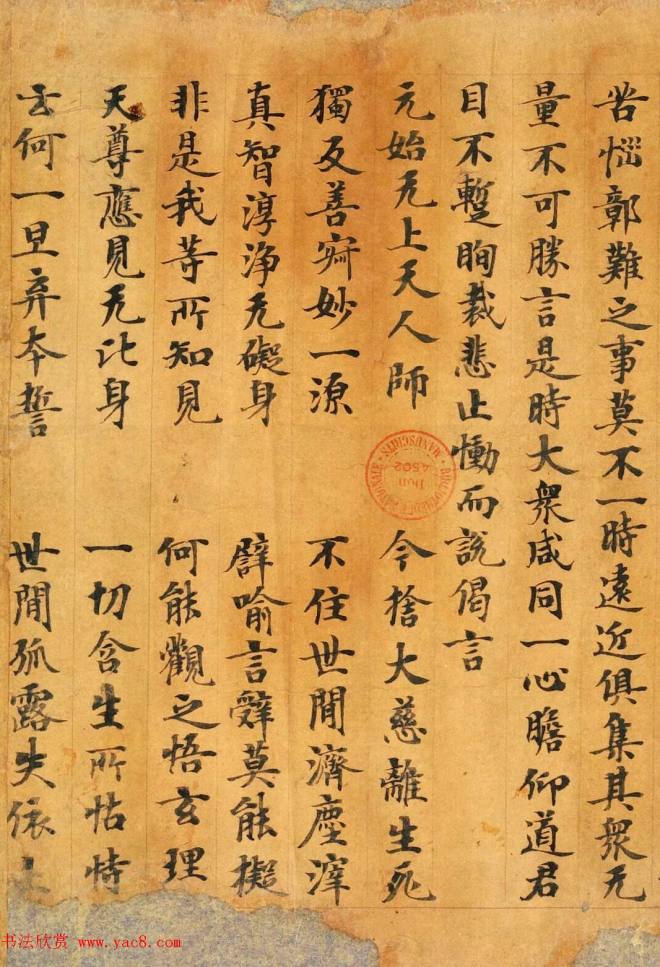 苦惱鄣難之事莫不一時遠近俱集其衆无
量不可勝言是時大衆咸同一心瞻仰道君
目不蹔眴裁悲止慟而說偈言
元始无上天人師 今捨大慈離生死
獨反善寂妙一源 不住世間濟塵滓
真智淳淨无礙身 譬喻言辭莫能擬
非是我等所知見 何能觀之悟玄理
天尊應見无比身 一切含生所怙恃
云何一旦弃本誓 世間孤露失依
BIBLIOTHEQUE NATIONALE MANUSCRITS
Don
4502
书法欣赏 www.yac8.com